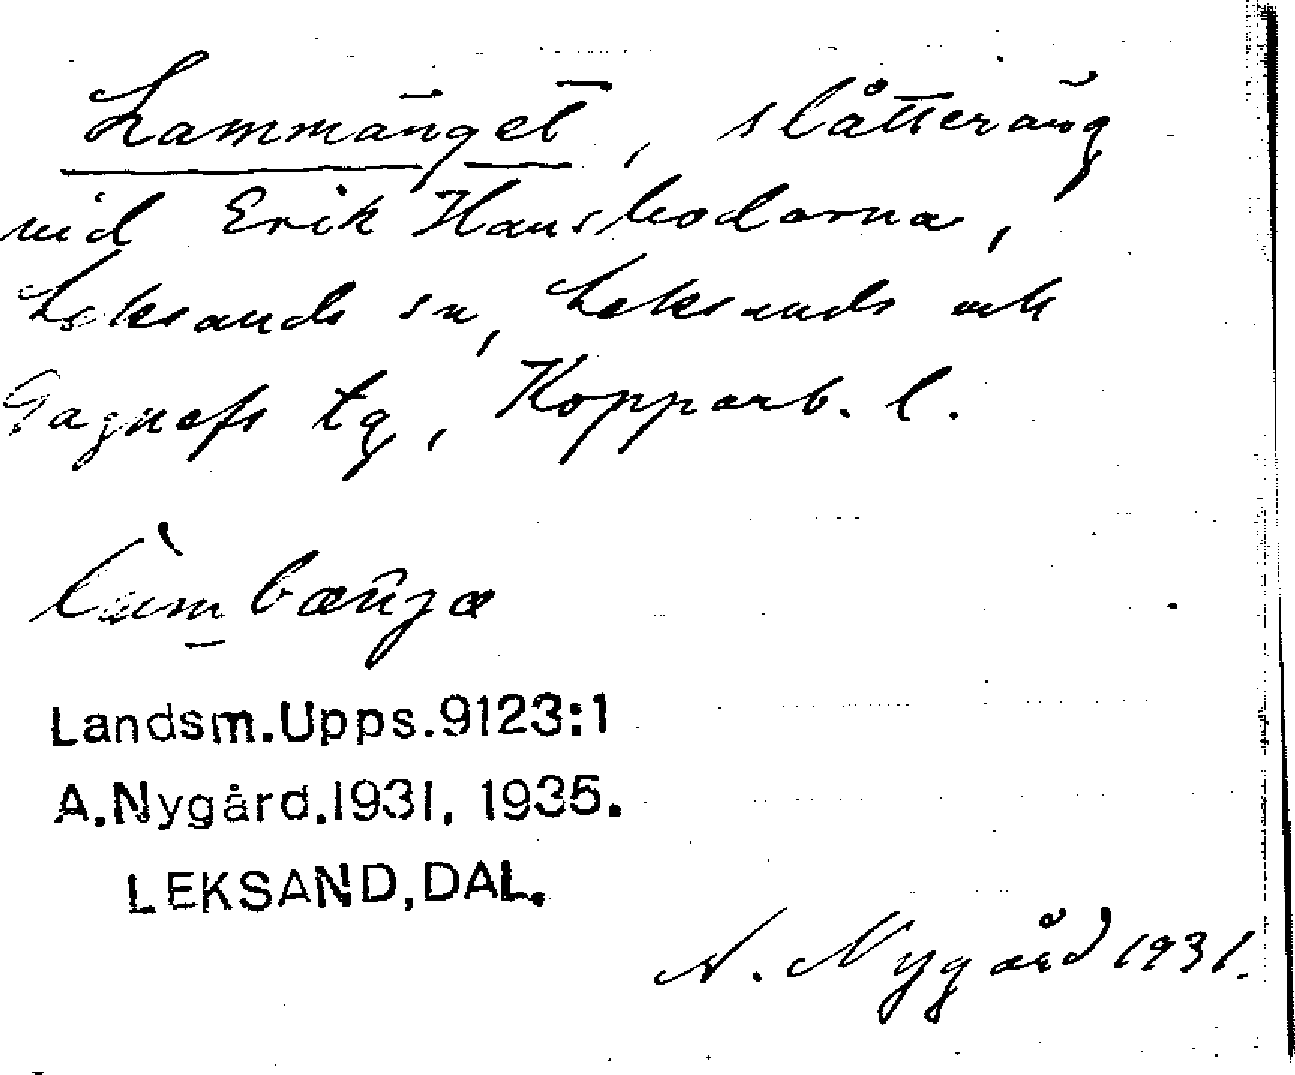 Lammänget, slåtteräng
vid Erik Hansbodarna,
Leksands sn, Leksands och
Gagnefs tg, Kopparb. l.
Landsm.Upps.9123:1
A.Nygård.1931, 1935.
LEKSAND,DAL.
A. Nygård 1931.